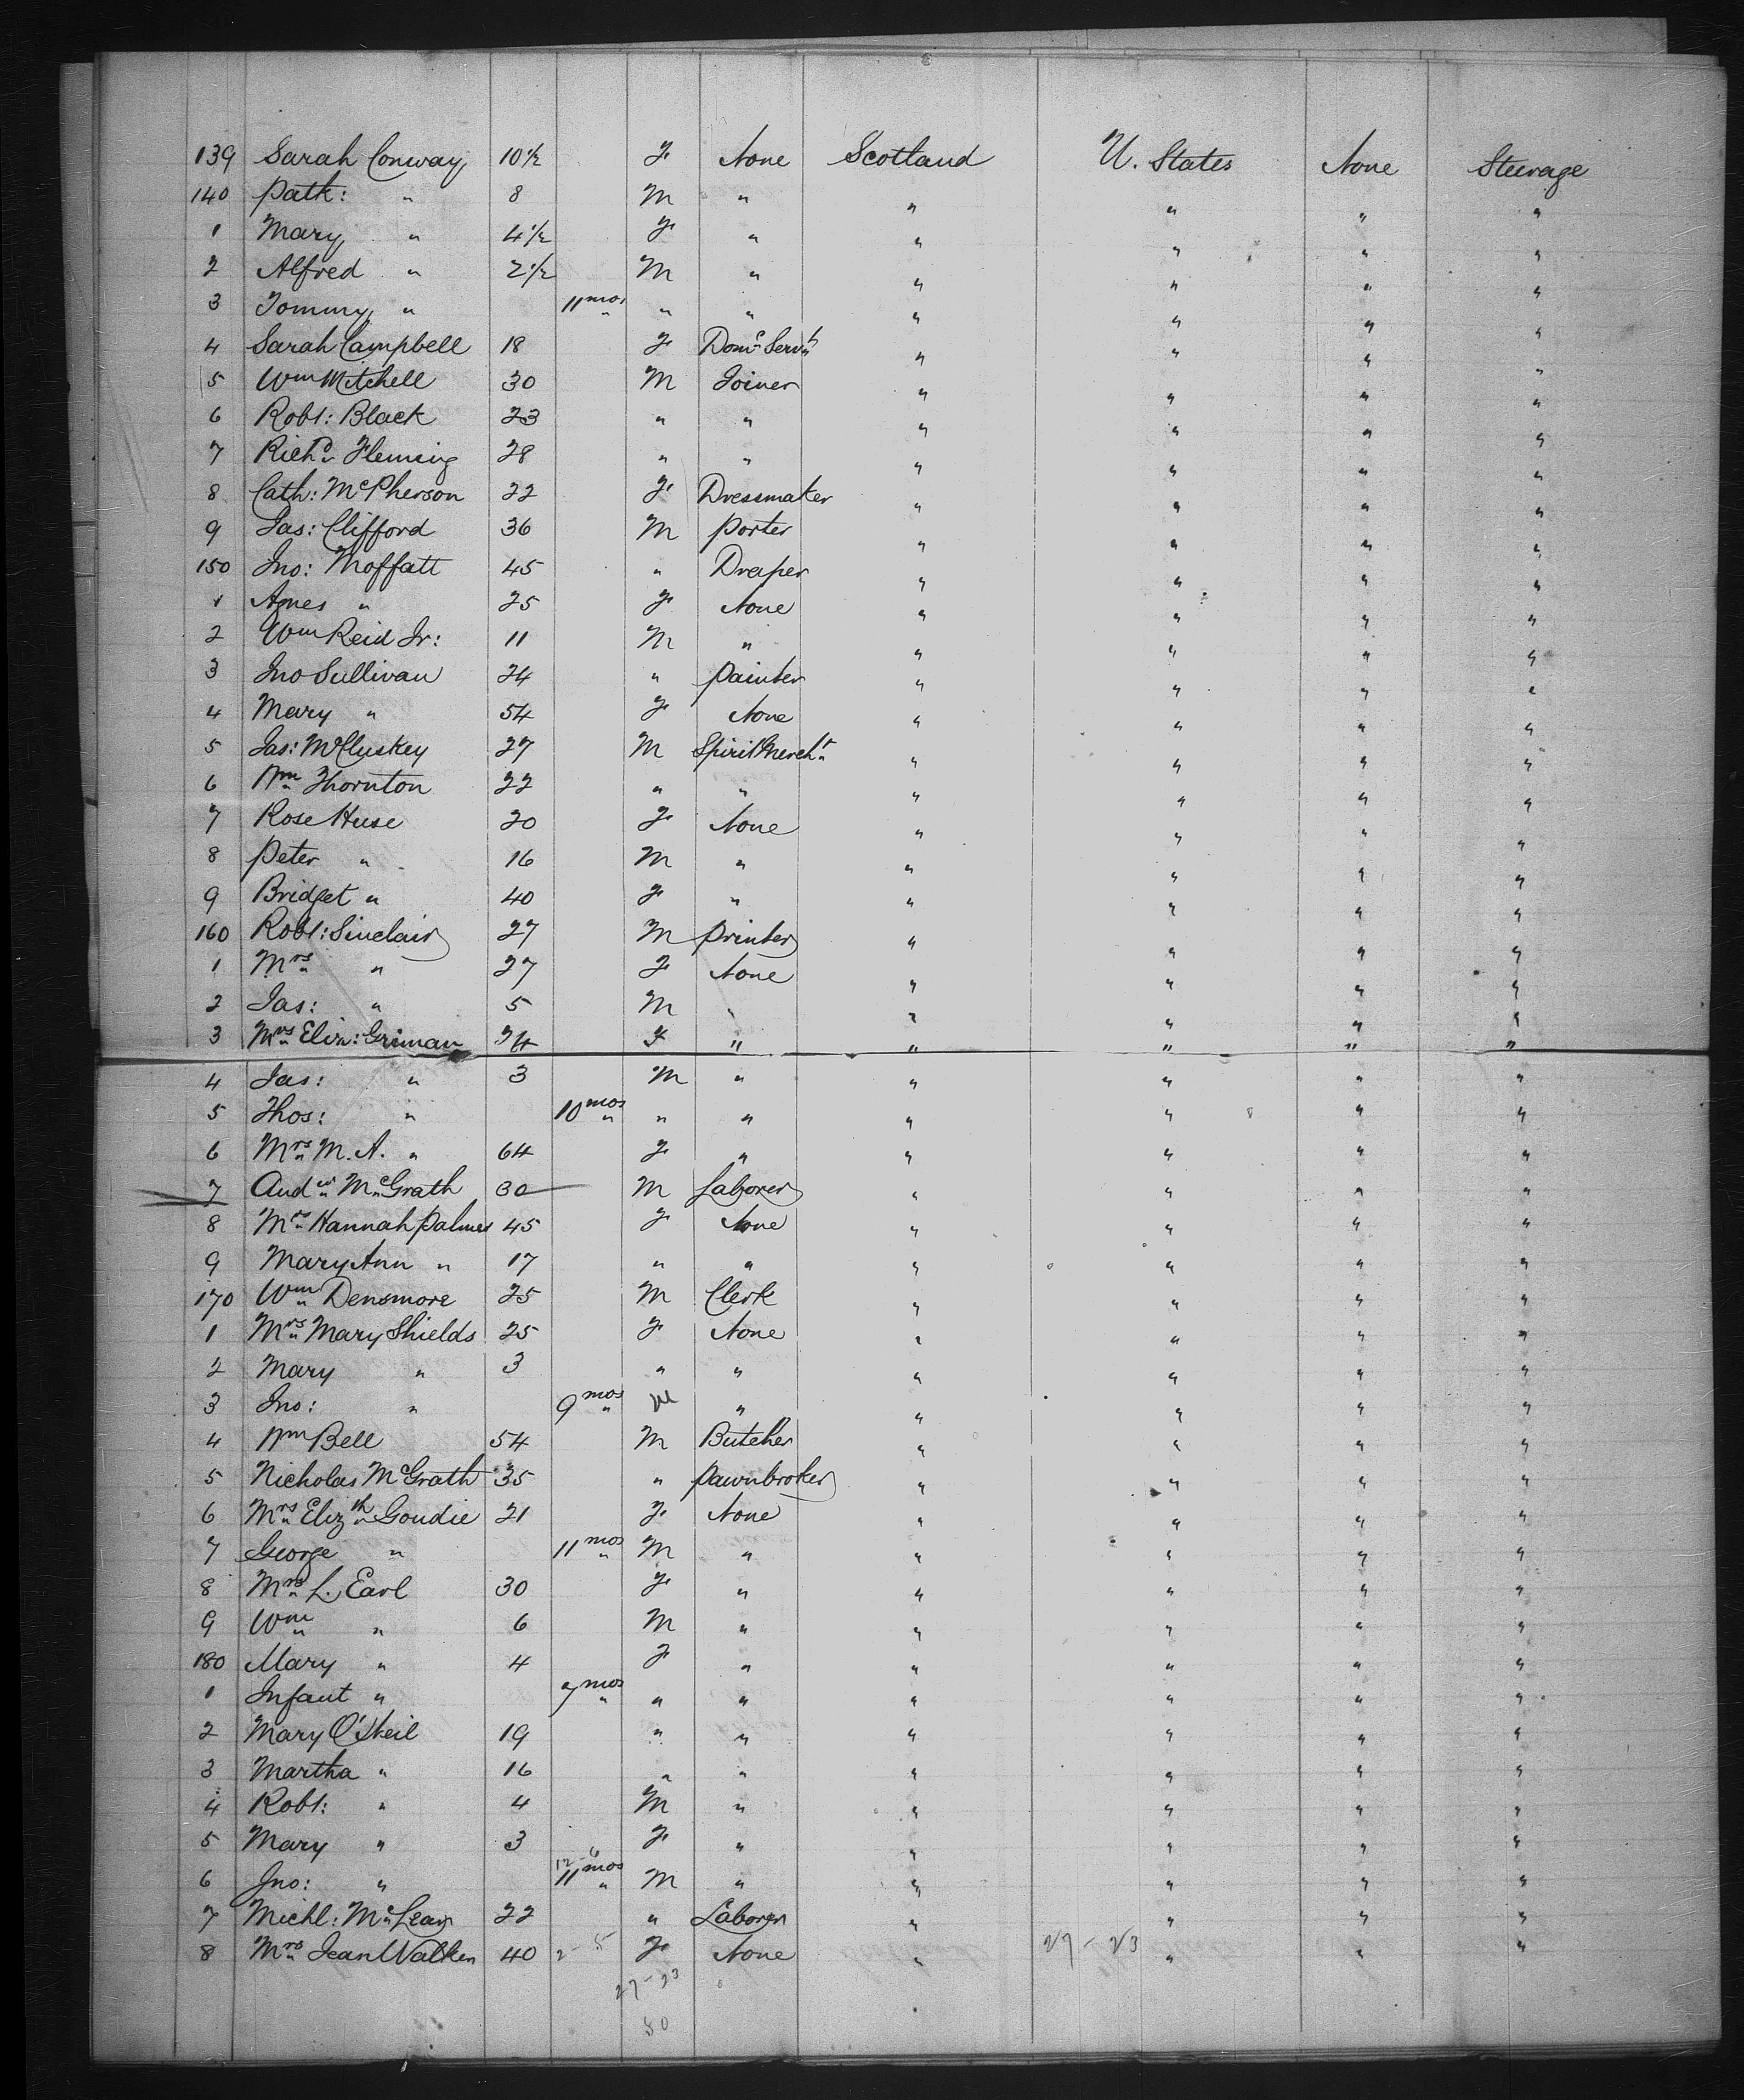 139 Sarah Conway 10½ F None Scotland U. States None Steerage
140 Patk: " 8 M " " " " "
1 Mary " 4½ F " " " " "
2 Alfred " 2½ M " " " " "
3 Tommy " 11 mos " " " " " "
4 Sarah Campbell 18 F Domc Servt " " " "
5 Wm Mitchell 30 M Joiner " " " "
6 Robt: Black 23 " " " " " "
7 Richd Fleming 28 " " " " " "
8 Cath: McPherson 22 F Dressmaker " " " "
9 Jas: Clifford 36 M Porter " " " "
150 Jno: Moffatt 45 " Draper " " " "
1 Agnes " 25 F None " " " "
2 Wm Reid Jr: 11 M " " " " "
3 Jno Sullivan 24 " Painter " " " "
4 Mary " 54 F None " " " "
5 Jas: McCluskey 27 M Spirit Mercht " " " "
6 Wm Thornton 22 " " " " " "
7 Rose Huse 20 F None " " " "
8 Peter " 16 M " " " " "
9 Bridget " 40 F " " " " "
160 Robt: Sinclair 27 M Printer " " " "
1 Mrs " 27 F None " " " "
2 Jas: " 5 M " " " " "
3 Mrs Eliz: Griman 34 F " " " " "
4 Jas: " 3 M " " " " "
5 Thos: " 10 mos " " " " " "
6 Mrs M. A. " 64 F " " " " "
7 Andw McGrath 30 M Laborer " " " "
8 Mrs Hannah Palmer 45 F None " " " "
9 Mary Ann " 17 " " " " " "
170 Wm Densmore 25 M Clerk " " " "
1 Mrs Mary Shields 25 F None " " " "
2 Mary " 3 " " " " " "
3 Jno: " 9 mos M " " " " "
4 Wm Bell 54 M Butcher " " " "
5 Nicholas McGrath 35 " Pawnbroker " " " "
6 Mrs Elizth Goudie 21 F None " " " "
7 George " 11 mos M " " " " "
8 Mrs L. Earl 30 F " " " " "
9 Wm " 6 M " " " " "
180 Mary " 4 F " " " " "
1 Infant " 7 mos " " " " " "
2 Mary O'Neil 19 " " " " " "
3 Martha " 16 " " " " " "
4 Robt: " 4 M " " " " "
5 Mary " 3 F " " " " "
6 Jno: " 11 mos M " " " " "
7 Michl: McLean 22 " Laborer " " " "
8 Mrs Jean Walker 40 2 - 5 F None " 27 - 23 " " "
27 - 23
50